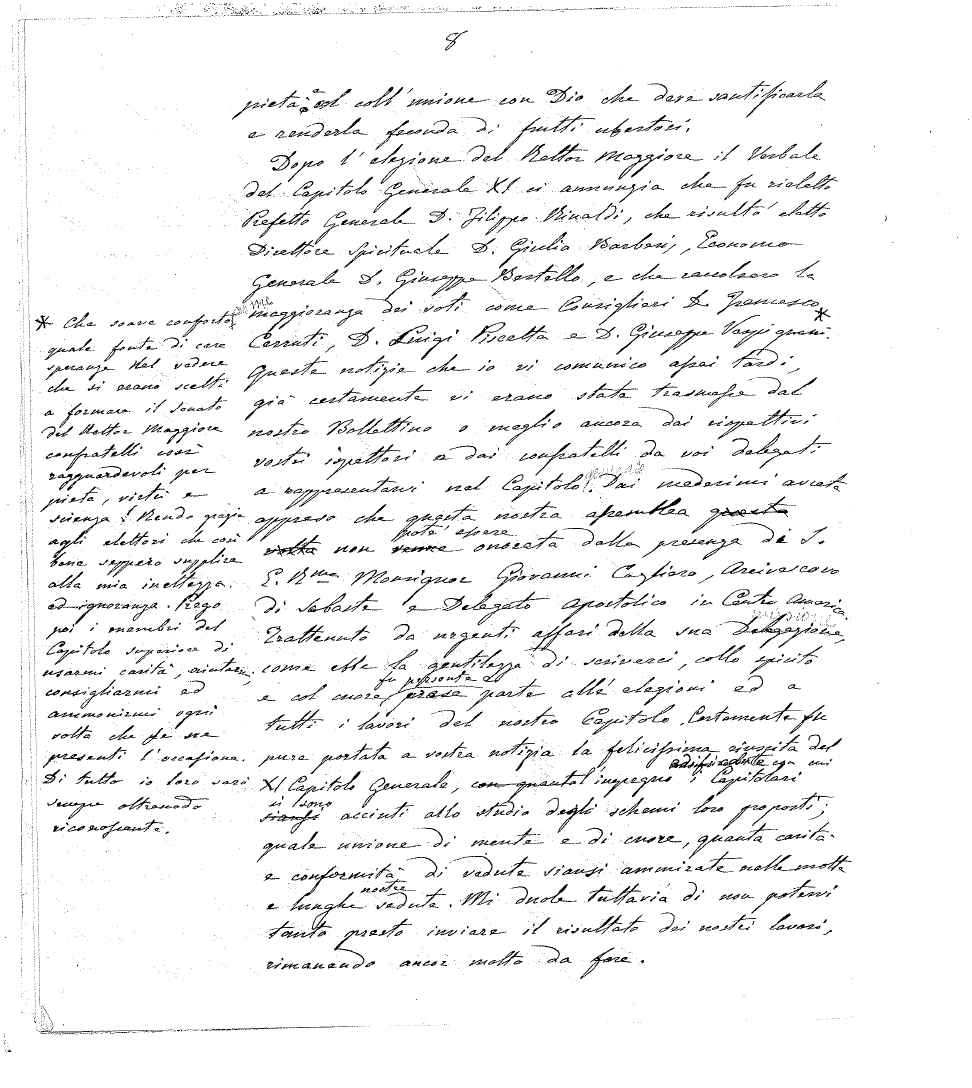 8
pietà e coll' unione con Dio che deve santificarla
e renderla feconda di frutti ubertosi.
Dopo l' elezione del Rettor Maggiore il Verbale
del Capitolo Generale XI ci annunzia che fu rieletto
Prefetto Generale D. Filippo Rinaldi, che risultò eletto
Direttore Spirituale D. Giulio Barberis, Economo
Generale D. Giuseppe Bertello, e che raccolsero la
maggioranza dei voti come Consiglieri D. Francesco
Cerruti, D. Luigi Piscetta e D. Giuseppe Vespignani. *
Queste notizie che io vi comunico assai tardi,
già certamente vi erano state trasmesse dal
nostro Bollettino o meglio ancora dai rispettivi
vostri ispettori e dai confratelli da voi delegati
a rappresentarvi nel Capitolo Generale. Dai medesimi avrete
appreso che questa nostra assemblea questa
volta non venne potè essere onorata dalla presenza di S.
E. Rma Monsignor Giovanni Cagliero, Arcivescovo
di Sebaste e Delegato Apostolico in Centro America.
Trattenuto da urgenti affari della sua Delegazione, missione
come ebbe la gentilezza di scriverci, collo spirito
e col cuore prese fu presente e parte alle elezioni ed a
tutti i lavori del nostro Capitolo. Certamente fu
pure portata a vostra notizia la felicissima riuscita del
XI Capitolo Generale, con quanto ingegno con cui i Capitolari
siansi si sono accinti allo studio degli schemi loro proposti;
quale unione di mente e di cuore, quanta carità
e conformità di vedute siansi ammirate nelle molte
e lunghe nostre sedute. Mi duole tuttavia di non potervi
tanto presto inviare il risultato dei nostri lavori,
rimanendo ancor molto da fare.
* Che soave conforto
quale fonte di care
speranze nel vedere
che si erano scelti
a formare il senato
del Rettor Maggiore
confratelli così
ragguardevoli per
pietà, virtù e
scienza! Rendo grazie
agli elettori che così
bene seppero supplire
alla mia inettezza
ed ignoranza. Prego
poi i membri del
Capitolo superiore di
usarmi carità, aiutarmi,
consigliarmi ed
ammonirmi ogni
volta che se ne
presenti l' occasione.
Di tutto io loro sarò
sempre oltremodo
riconoscente.